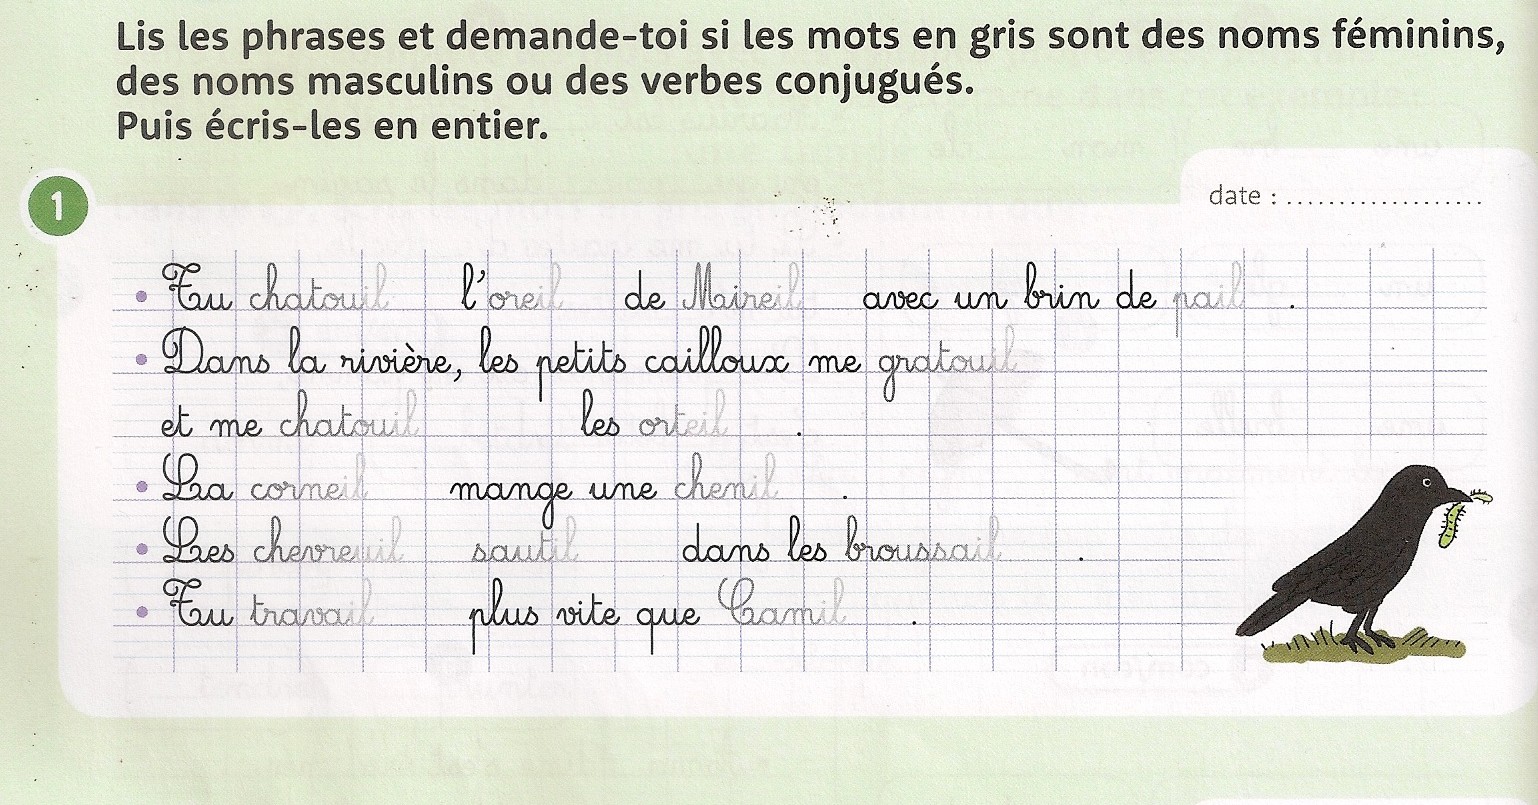 Lis les phrases et demande-toi si les mots en gris sont des noms féminins,
des noms masculins ou des verbes conjugués.
Puis écris-les en entier.
1
date : ...................
• Tu chatouil l'oreil de Mireil avec un brin de pail .
• Dans la rivière, les petits cailloux me gratouil
et me chatouil les orteil .
• La corneil mange une chenil .
• Les chevreuil sautil dans les broussail .
• Tu travail plus vite que Camil .